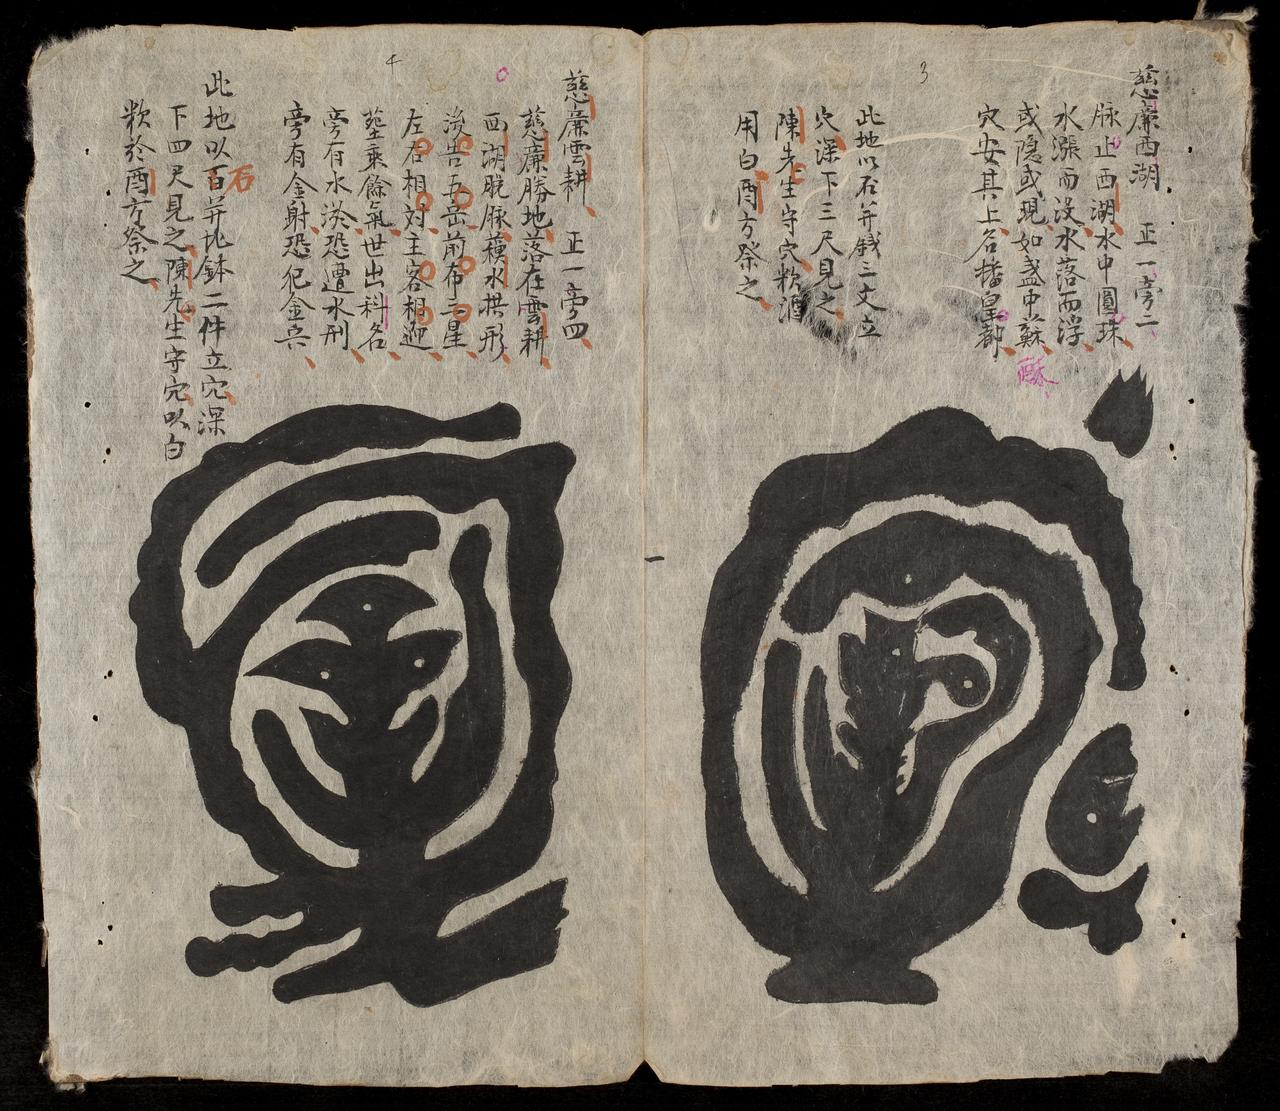 3
慈廉西湖　正一旁二
脉止西湖水中圓珠
水漲而没水落而浮
或隐或現如盏中蘇
穴安其上名播皇都
此地以石并銭三文立
穴深下三尺見之
陳先生守穴欵酒
用白酉方祭之
4
慈廉雲耕　正一旁四
慈廉勝地落在雲耕
西湖脱脉蘓水拱形
後告五岳前布三星
左右相對主客相迎
塟乘餘氣世出科名
旁有水淡恐遭水刑
旁有金射恐犯金兵
此地以百并瓦鉢二件立穴深
石
下四尺見之陳先生守穴以白
欵於酉方祭之